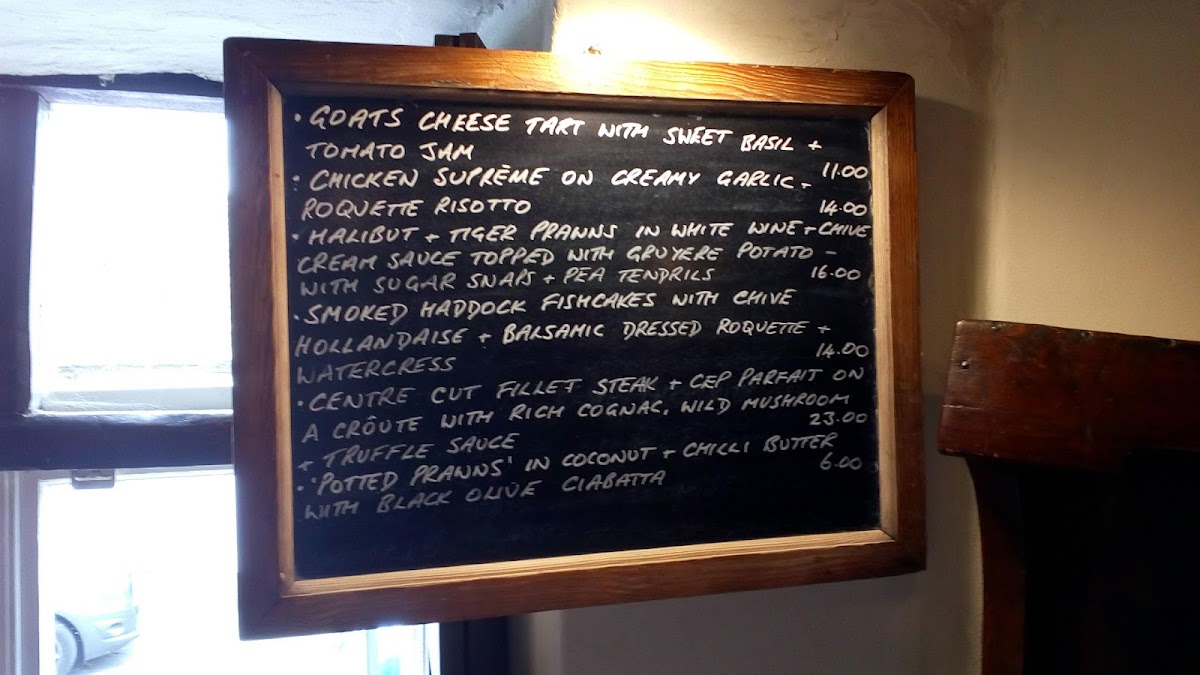 • GOATS CHEESE TART WITH SWEET BASIL +
TOMATO JAM 11.00
• CHICKEN SUPRÈME ON CREAMY GARLIC -
ROQUETTE RISOTTO 14.00
• HALIBUT + TIGER PRAWNS IN WHITE WINE + CHIVE
CREAM SAUCE TOPPED WITH GRUYERE POTATO -
WITH SUGAR SNAPS + PEA TENDRILS 16.00
• SMOKED HADDOCK FISHCAKES WITH CHIVE
HOLLANDAISE + BALSAMIC DRESSED ROQUETTE +
WATERCRESS 14.00
• CENTRE CUT FILLET STEAK + CEP PARFAIT ON
A CRÔUTE WITH RICH COGNAC, WILD MUSHROOM
+ TRUFFLE SAUCE 23.00
• 'POTTED PRAWNS' IN COCONUT + CHILLI BUTTER
WITH BLACK OLIVE CIABATTA 6.00